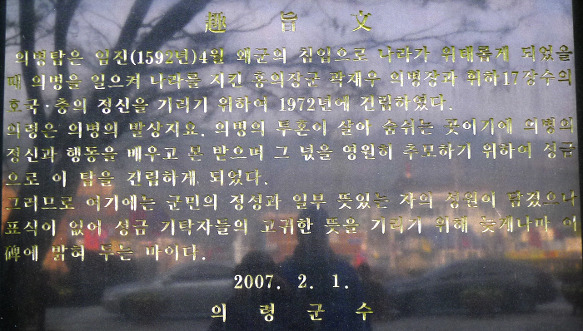 趣旨文
의병탑은 임진(1592년)4월 왜군의 침입으로 나라가 위태롭게 되었을
때 의병을 일으켜 나라를 지킨 홍의장군 곽재우 의병장과 휘하17장수의
호국·충의 정신을 기리기 위하여 1972년에 건립하였다.
의령은 의병의 발상지요, 의병의 투혼이 살아 숨쉬는 곳이기에 의병의
정신과 행동을 배우고 본 받으며 그 넋을 영원히 추모하기 위하여 성금
으로 이 탑을 건립하게 되었다.
그러므로 여기에는 군민의 정성과 일부 뜻있는 자의 성원이 담겼으나
표식이 없어 성금 기탁자들의 고귀한 뜻을 기리기 위해 늦게나마 이
碑에 밝혀 두는 바이다.
2007. 2. 1.
의령군수